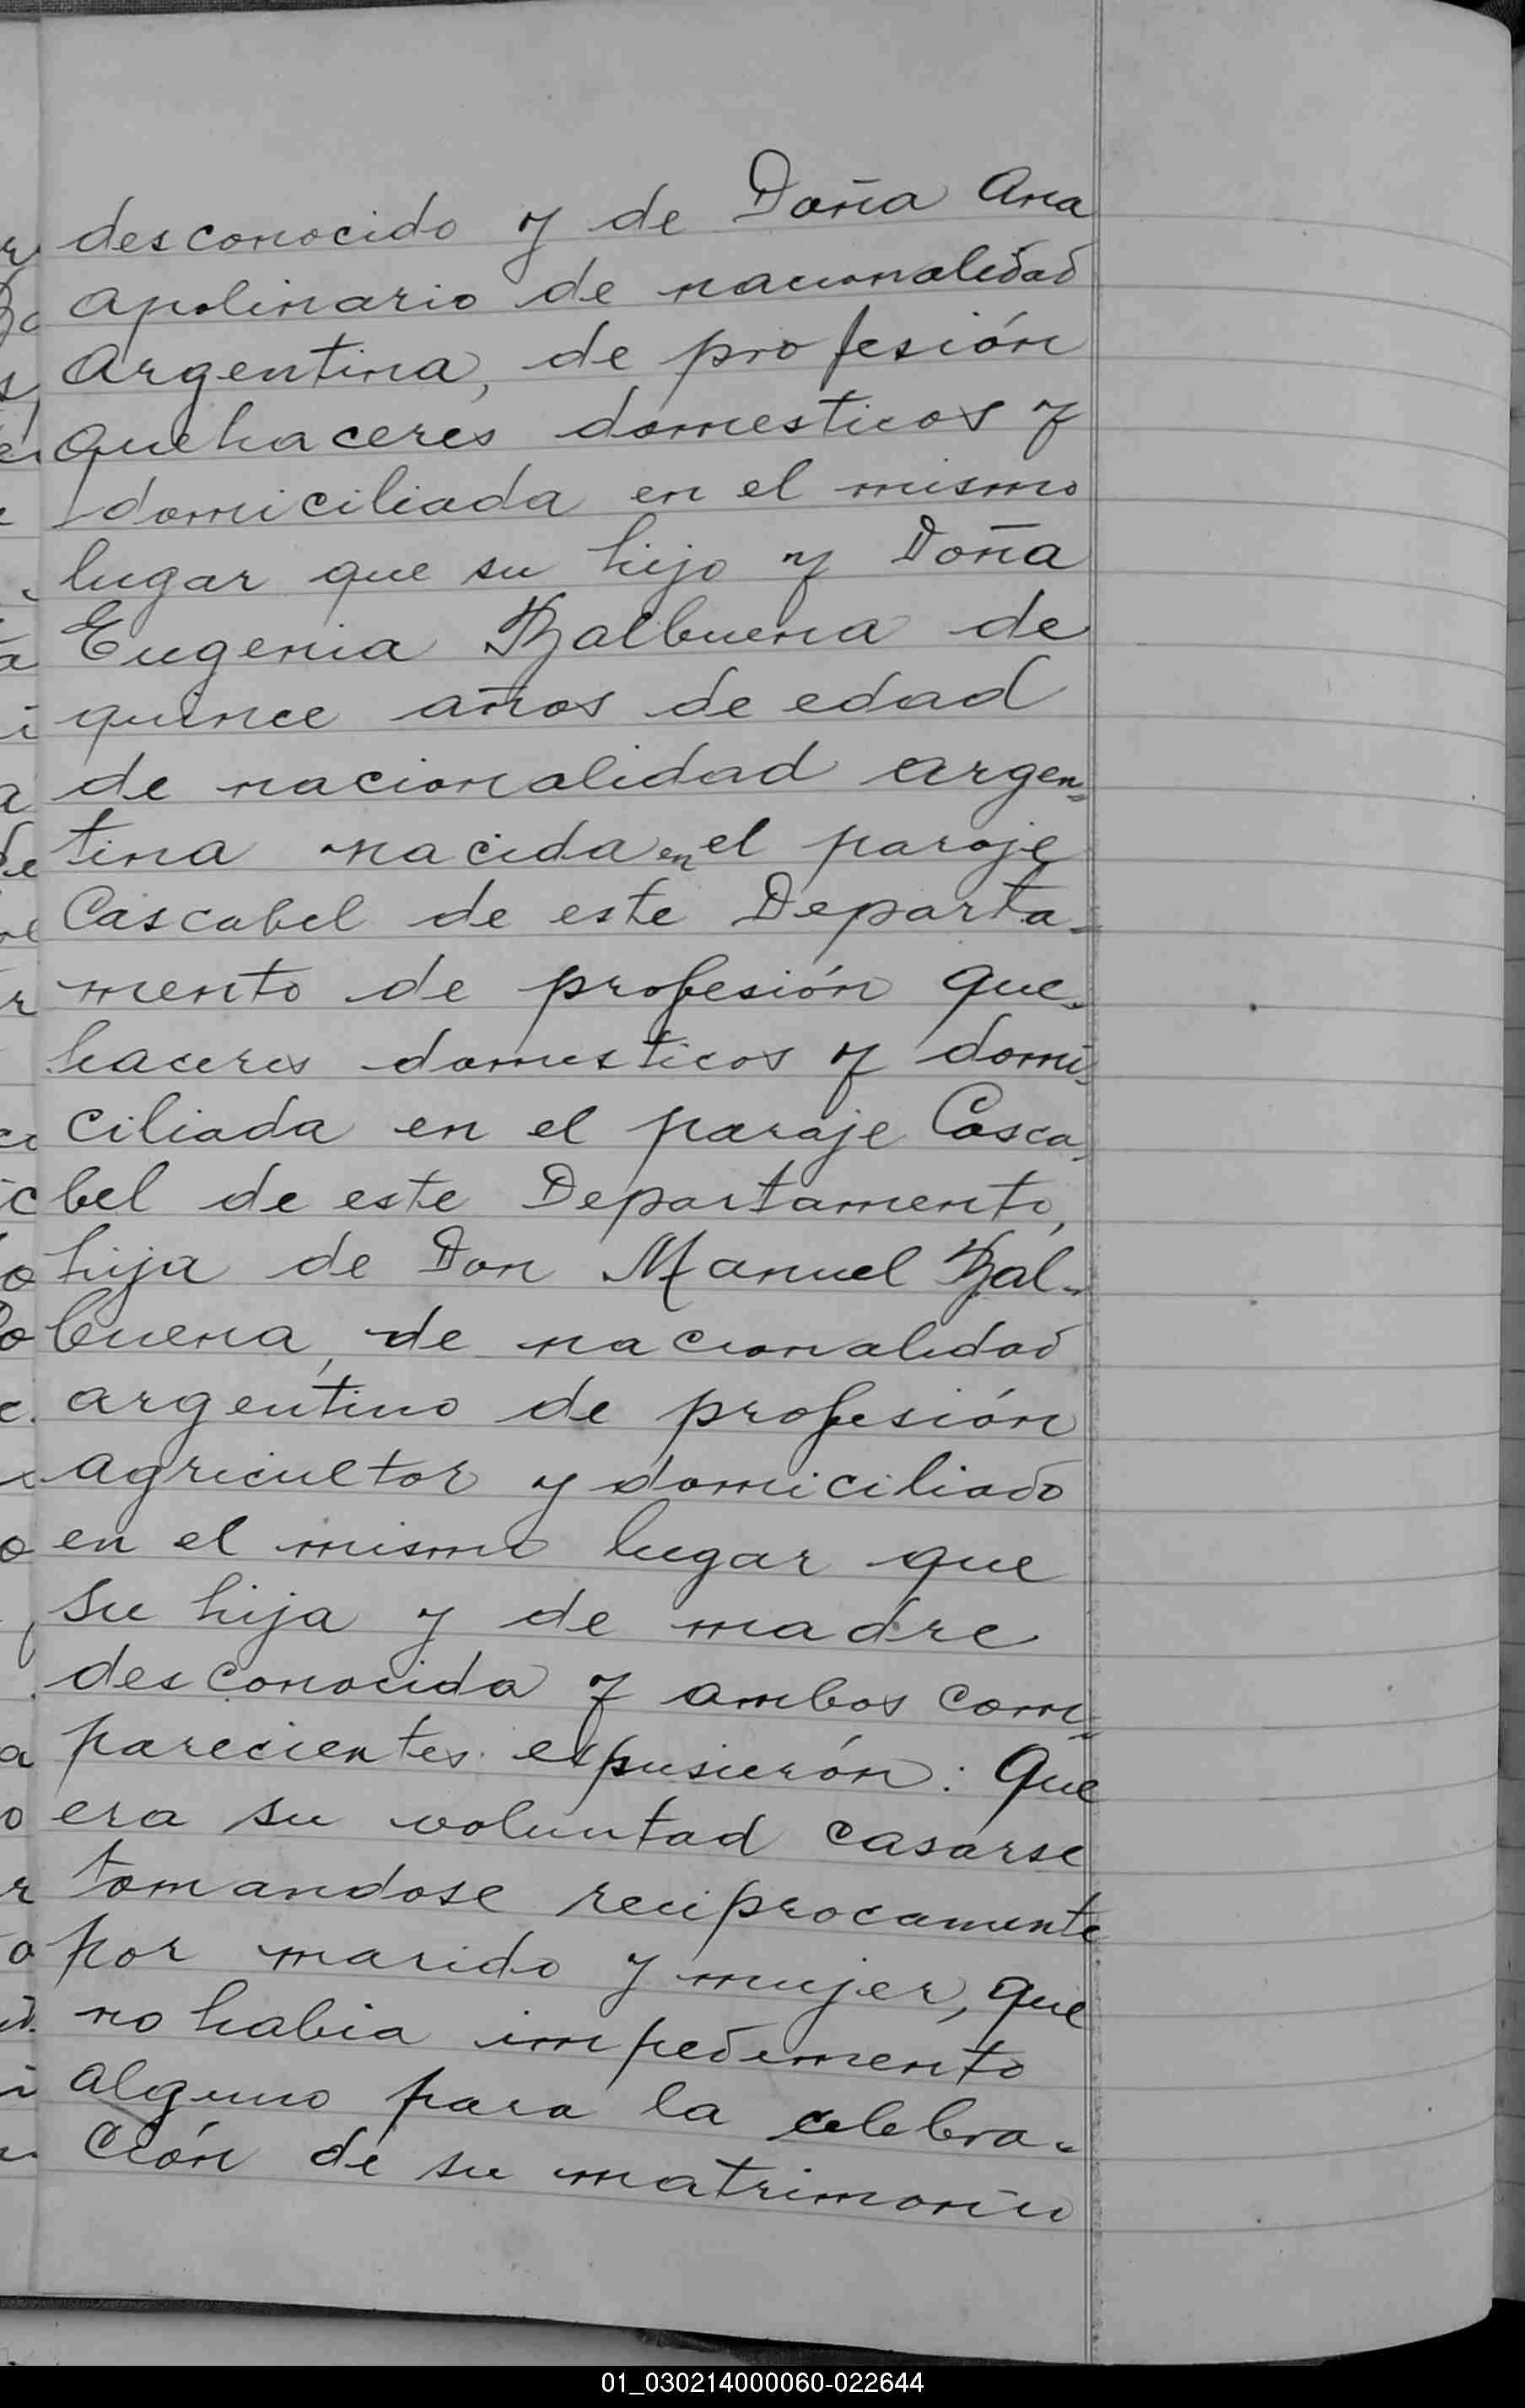 desconocido y de Doña Ana
Apolinario de nacionalidad
Argentina, de profesión
quehaceres domesticos y
domiciliada en el mismo
lugar que su hijo y Doña
Eugenia Balbuena de
quince años de edad
de nacionalidad argen=
tina nacida en el paraje
Cascabel de este Departa=
mento de profesión que=
haceres domesticos y domi=
ciliada en el paraje Casca=
bel de este Departamento,
hija de Don Manuel Bal=
buena, de nacionalidad
argentino de profesión
agricultor y domiciliado
en el mismo lugar que
su hija y de madre
desconocida y ambos com=
parecientes expusierón: Que
era su voluntad casarse
tomandose reciprocamente
por marido y mujer, que
no habia impedimento
alguno para la celebra=
ción de su matrimonio
01_030214000060-022644